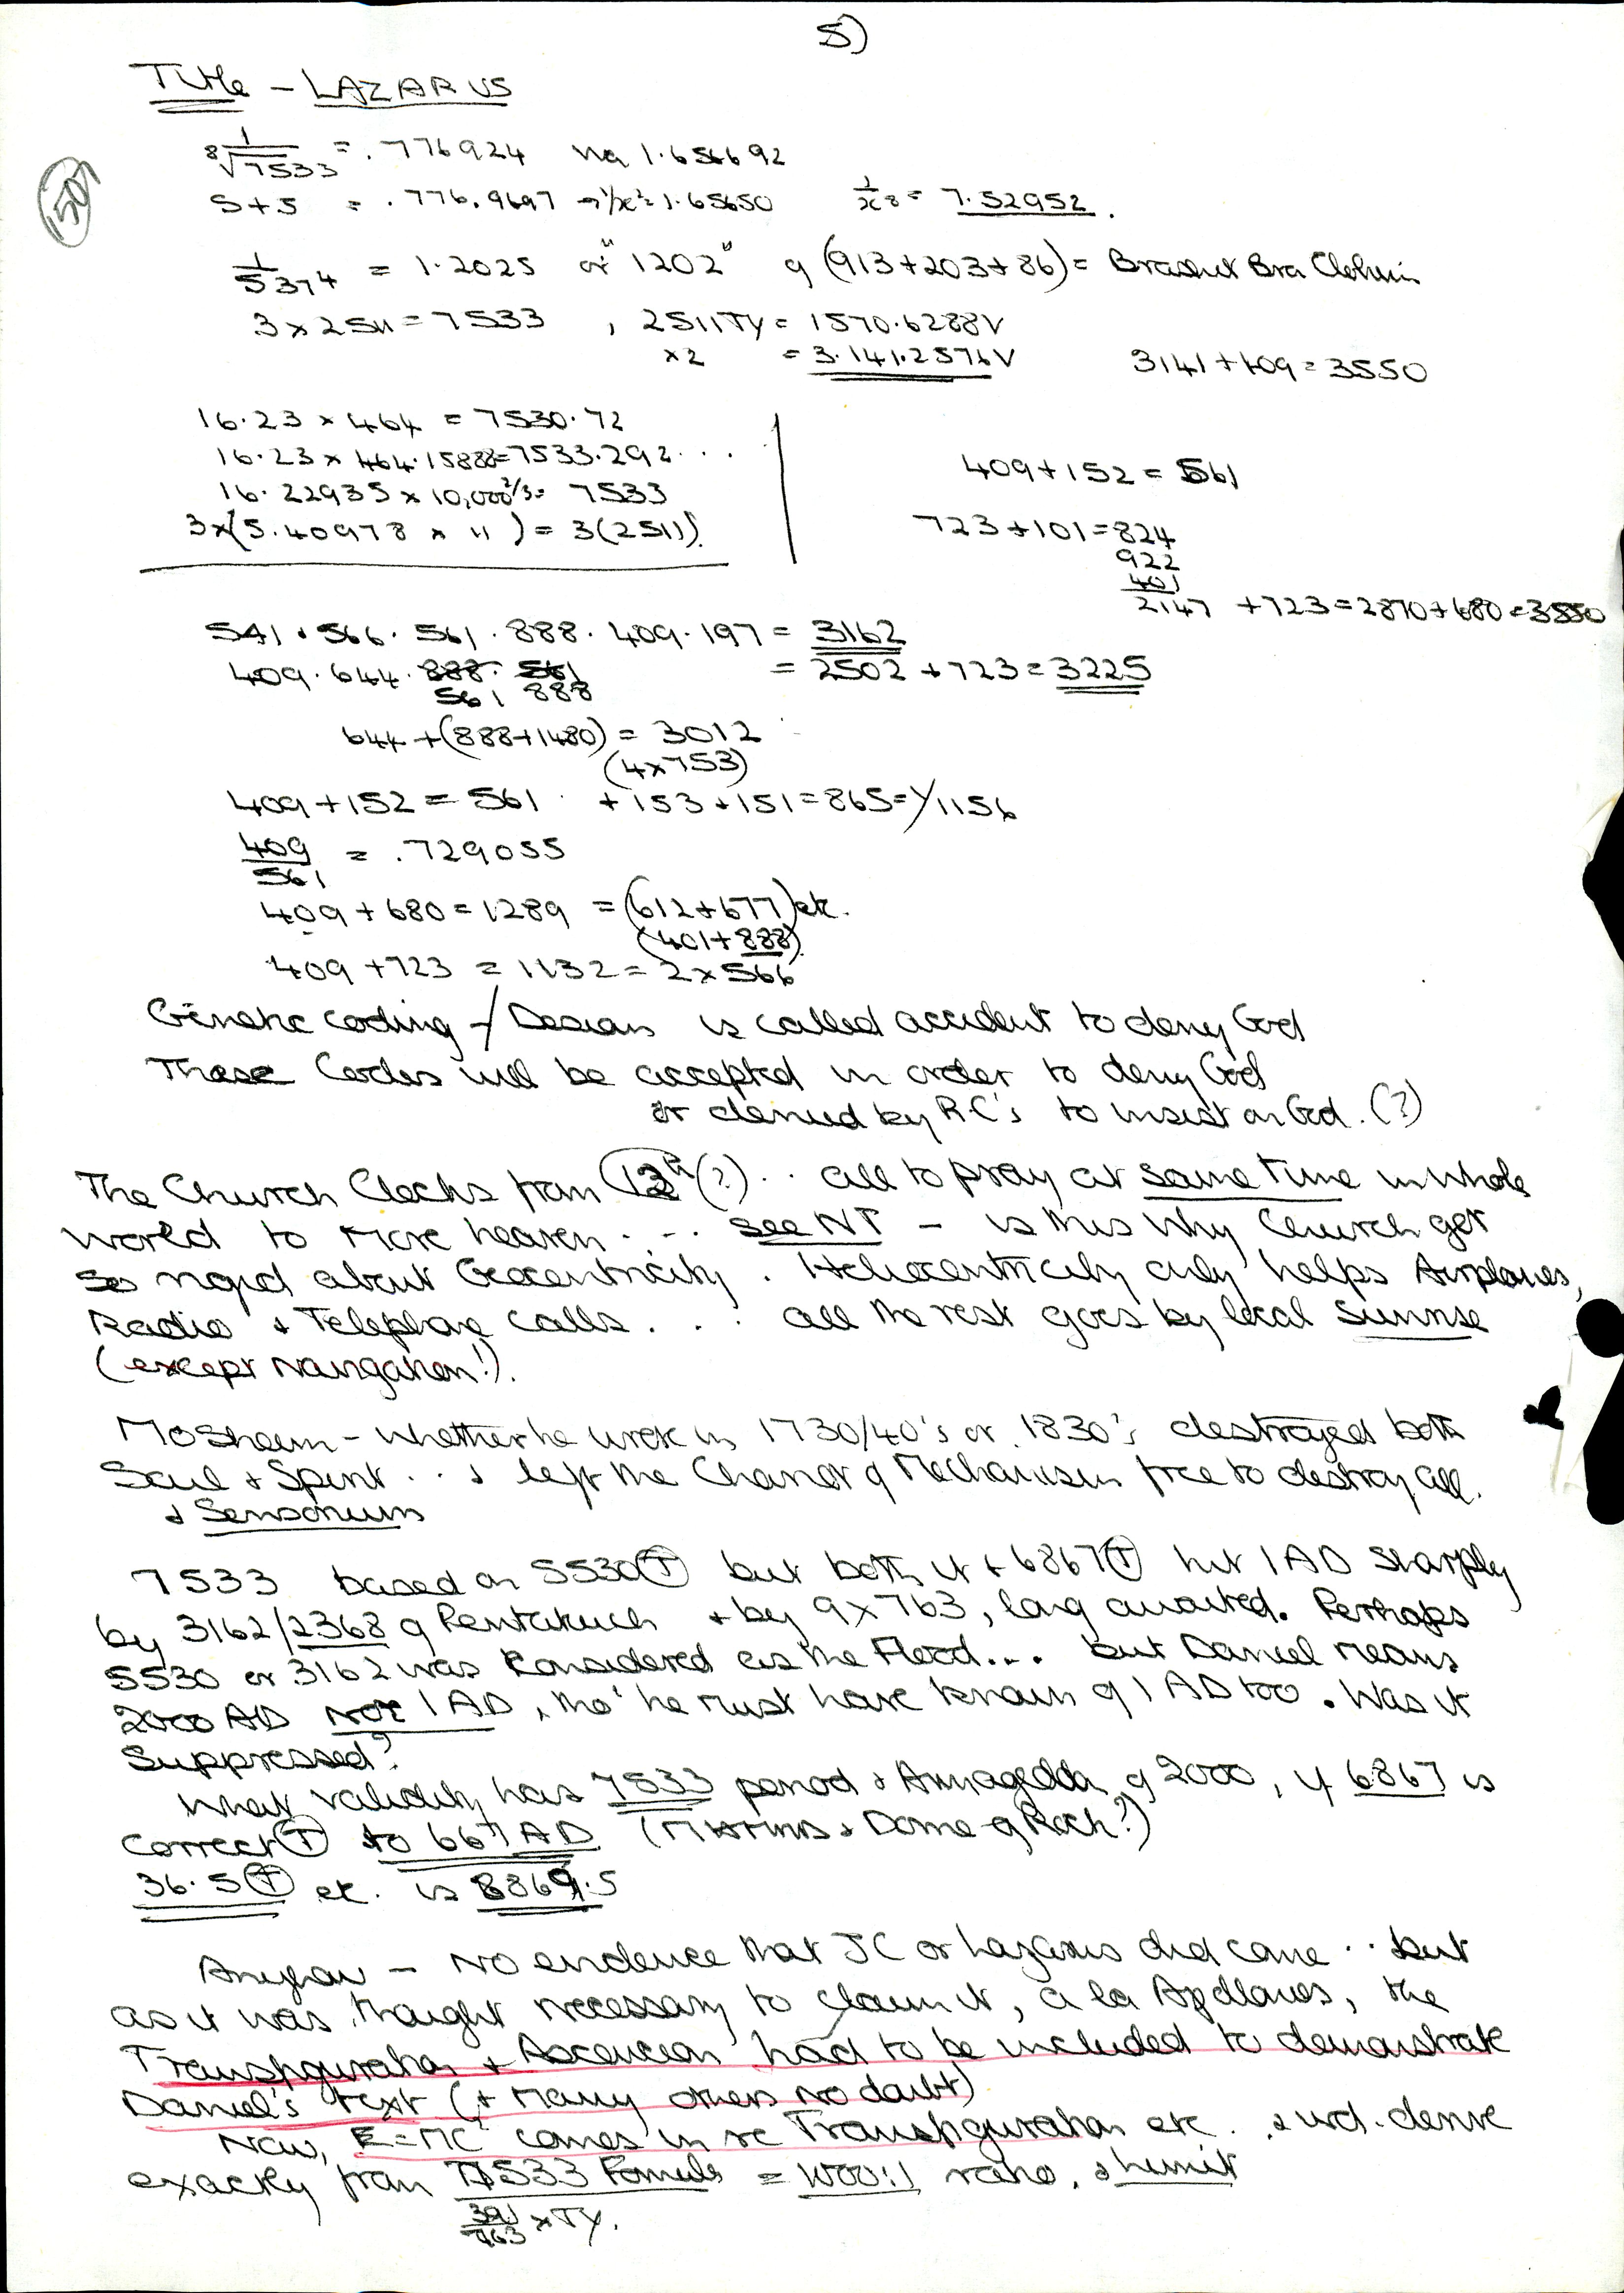 5)
Title - LAZARUS
1507
1/8√7533 = .776924 via 1.656692
5+5 = .776.9697 → 1/x² = 1.65650 1/x8 = 7.52952.
1/5374 = 1.2025 or "1202" of (913+203+86) = Brashit Bra Elohim
3 x 2511 = 7533 , 2511TY = 1570.6288V
x2 = 3.141.2576V 3141+409=3550
16.23 x 464 = 7530.72
16.23 x 464.15888=7533.292...
409+152 = 561
16.22935 x 10,000 2/3 = 7533
3x(5.40978 x " ) = 3(2511).
723+101=824
922
401
2147 +723=2870+680=3550
541.566.561.888.409.197 = 3162
409.644.888.561 = 2502+723=3225
561 888
644+(888+1480) = 3012
(4x753)
409+152 = 561 +153+151=865=1/1156
409/561 = .729055
409+680=1289 = (612+677) etc.
(401+888)
409+723 = 1132 = 2x566
Genetic coding / Design is called accident to deny God
These Codes will be accepted in order to deny God
or denied by R.C's to insist on God. (?)
The Church Clocks from 13th (?) .. all to pray at same time in whole
world to move heaven . . . see NT - is this why Church get
so rigid about Geocentricity. Heliocentricity only helps Airplanes,
Radio & Telephone calls. . . all the rest goes by local sunrise
(except Navigation!).
Mosheim - whether he wrote in 1730/40's or 1830's destroyed both
Soul & Spirit... & left the Chariot of Mechanism free to destroy all.
& Sensorium
7533 based on 5530 (T) but both it & 6867 (T) hit 1AD sharply
by 3162/2368 of Pentateuch & by 9x763, long awaited. Perhaps
5530 or 3162 was considered as the Flood... but Daniel means
2000 AD NOT 1AD, tho' he must have known of 1AD too. Was it
Suppressed?
What validity has 7533 period & Armageddon of 2000, if 6867 is
correct (T) to 667 AD ( & Dome of Rock?)
36.5 (T) etc. is 8869.5
Anyhow - No evidence that JC or Lazarus did come .. but
as it was thought necessary to claim it, a la Apollonius, the
Transfiguration & Ascension had to be included to demonstrate
Daniel's text (& many others no doubt)
Now, E=MC² comes in re Transfiguration etc. & wd. derive
exactly from 7533 Formula = 1000:1 ratio, & limit
391/763 x TY.